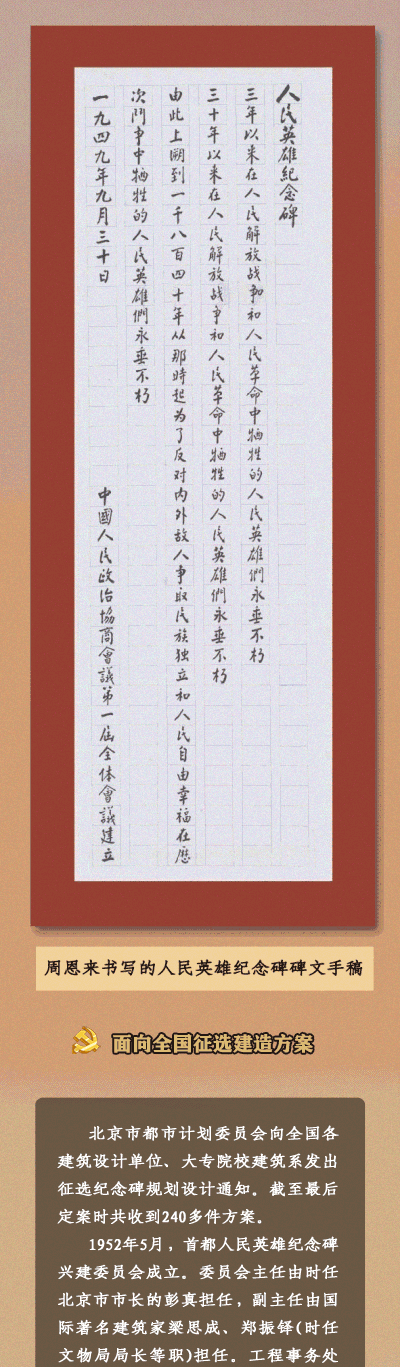 人民英雄紀念碑
三年以来在人民解放战争和人民革命中牺牲的人民英雄們永垂不朽
三十年以来在人民解放战争和人民革命中牺牲的人民英雄們永垂不朽
由此上溯到一千八百四十年从那時起为了反对内外敌人争取民族独立和人民自由幸福在歷
次鬥争中牺牲的人民英雄們永垂不朽
一九四九年九月三十日
中國人民政治協商會議第一屆全体會議建立
周恩来书写的人民英雄纪念碑碑文手稿
面向全国征选建造方案
北京市都市计划委员会向全国各
建筑设计单位、大专院校建筑系发出
征选纪念碑规划设计通知。截至最后
定案时共收到240多件方案。
1952年5月，首都人民英雄纪念碑
兴建委员会成立。委员会主任由时任
北京市市长的彭真担任，副主任由国
际著名建筑家梁思成、郑振铎(时任
文物局局长等职)担任。工程事务处